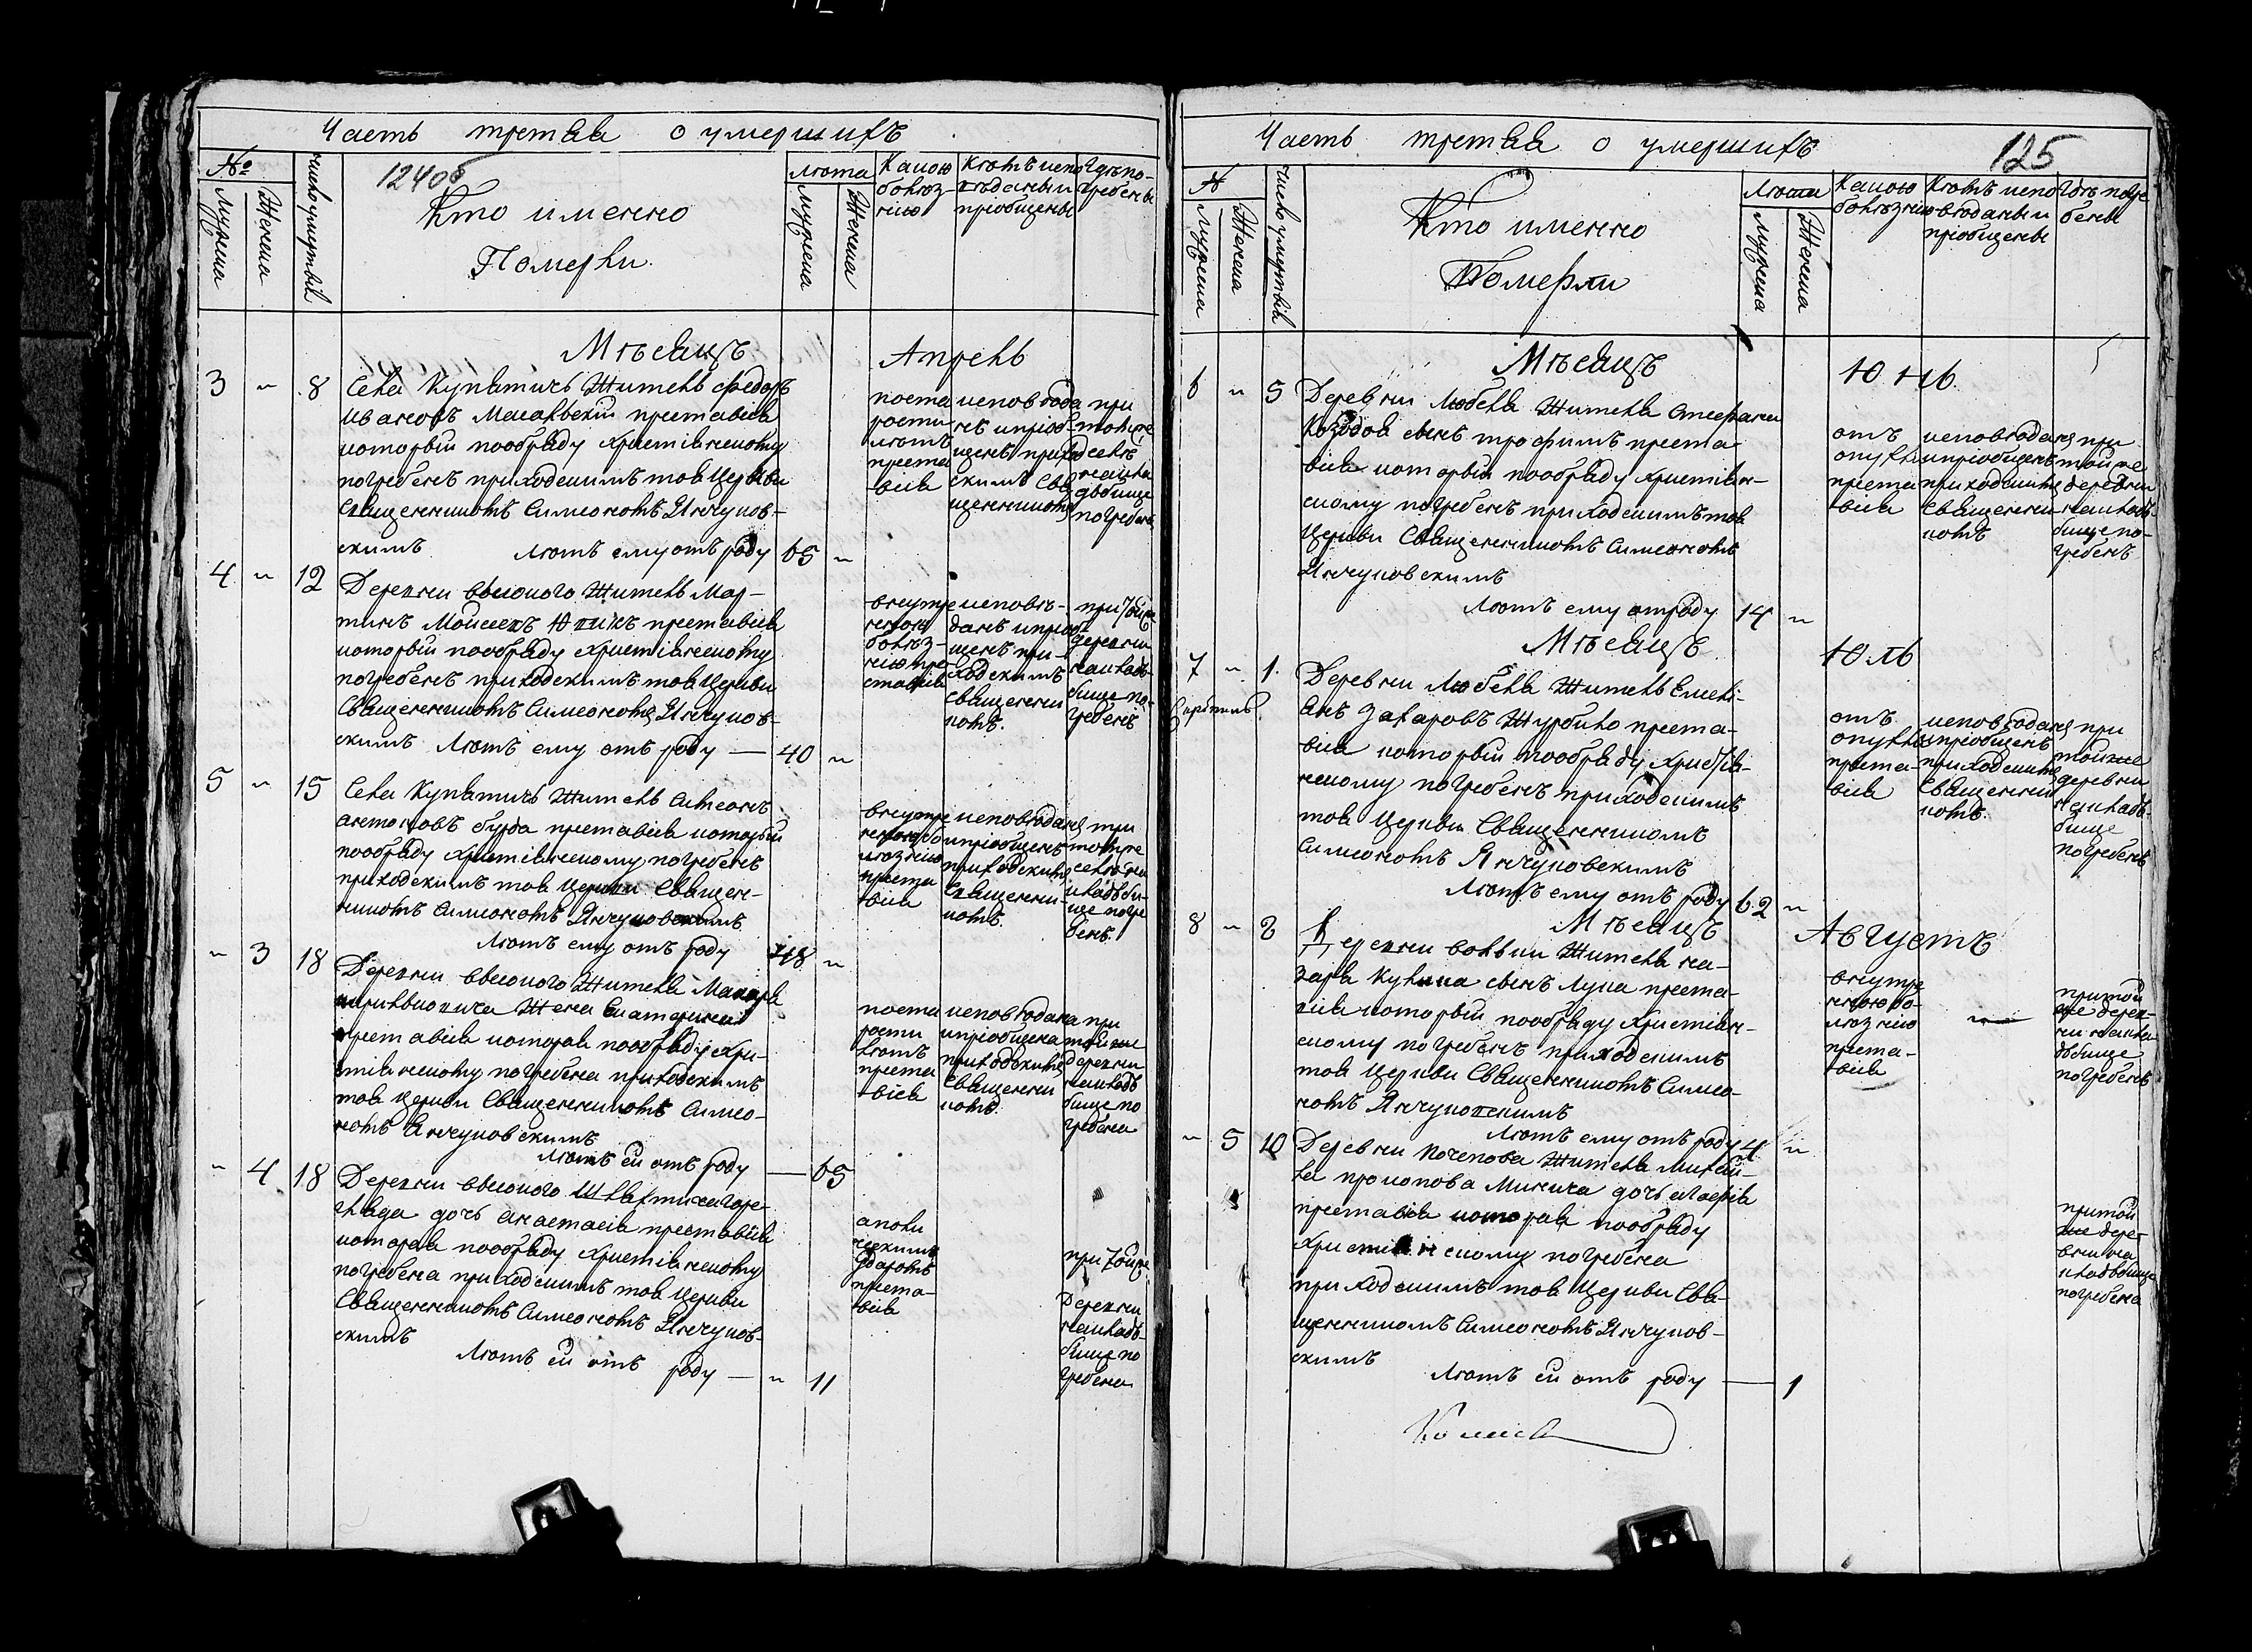 Часть третяя о умершихъ
№
Мужеска
Женска
число умертвія
124об
Кто именно
Померли.
лѣта
Мужеска
Женска
Какою
болѣз-
нію
Кѣмъ испо
вѣданы и
пріобщены
Гдѣ по-
гребены
Мѣсяцъ Апрель
3 " 8
Села Купятичъ Житель Федоръ
Ивановъ преставися
который пообряду Христіянскому
погребенъ приходскимъ тоя Церкви
Священникомъ Симеономъ Янчуков-
скимъ Лѣтъ ему отъ роду 65 "
поста
рости
лѣтъ
преста
вися
исповѣда
нъ и пріоб-
щенъ приход
скимъ Свя
щенникомъ
при
томже
селѣ
накла
дбище
погребенъ
4 " 12
Деревни высокого Житель Мар-
тинъ преставися
который пообряду Христіянскому
погребенъ приходскимъ тоя Церкви
Священникомъ Симеономъ Янчуков-
скимъ Лѣтъ ему отъ роду — 40 "
внутре
ннею
болѣз-
нію пре-
ставися
исповѣ-
данъ и пріоб
щенъ при-
ходскимъ
Священни
комъ.
при тойже
деревни
накладъ-
бище по-
гребенъ
5 " 15
Села Купятичъ Житель Симеонъ
антоновъ бурда преставися который
пообряду Христіянскому погребенъ
приходскимъ тоя Церкви Священ-
никомъ Симеономъ Янчуковскимъ
Лѣтъ ему отъ роду 48 "
внутре
ннею бо
лѣзнію
преста
вися
исповѣданъ
и пріобщенъ
приходскимъ
Священни-
комъ.
при
томже
селѣ на
кладъби-
ще погре
бенъ.
" 3 18
Деревни высокого Жителя Макара
Жена Екатерина
преставися которая пообряду Хри-
стіянскому погребена приходскимъ
тоя Церкви Священникомъ Симео-
номъ Янчуковскимъ
Лѣтъ ей отъ роду — 65
поста
рости
лѣтъ
преста
вися
исповѣдана
и пріобщена
приходскимъ
Священни
комъ
при
тойже
деревни
накладъ
бище по
гребена
" 4 18
Деревни высокого
дочь анастасія преставися
которая пообряду Христіянскому
погребена приходскимъ тоя Церкви
Священникомъ Симеономъ Янчуков-
скимъ
Лѣтъ ей отъ роду — " 11
аполи
ческимъ
ударомъ
преста-
вися
при тойже
Деревни
накладъ-
бище по
гребена
Часть третяя о умершихъ
125
№
Мужеска
Женска
число умертвій
Кто именно
Померли
Лѣта
Мужеска
Женска
Какою
болѣзнію
Кѣмъ испо
вѣданы и
пріобщены
Гдѣ погре
бены
Мѣсяцъ Юнь
6 " 5
Деревни Любеля Жителя Стефана
Козоdоя сынъ трофимъ преста-
вися который пообряду Христіян-
скому погребенъ приходскимъ тоя
Церкви Священникомъ Симеономъ
Янчуковскимъ
Лѣтъ ему отроду 14 "
отъ
опухли
преста
вися
исповѣданъ
и пріобщенъ
приходскимъ
Священни
комъ
при
тойже
деревни
накладъ
бище по-
гребенъ
Мѣсяцъ Юль
7 " 1.
Деревни Любеля Житель Емелі-
анъ Захаровъ Журбило преста-
вися который пообряду Христія-
нскому погребенъ приходскимъ
тоя Церкви Священникомъ
Симеономъ Янчуковскимъ
Лѣтъ ему отъ роду 62 "
отъ
опухли
преста-
вися
исповѣданъ
и пріобщенъ
приходскимъ
Священни
комъ.
при
тойже
деревни
накладъ-
бище
погребенъ
Мѣсяцъ Августъ
8 " 2
Деревни волкии Жителя на-
зара сынъ Лука преста-
вися который пообряду Христіян-
скому погребенъ приходскимъ
тоя Церкви Священникомъ Симео-
номъ Янчуковскимъ
Лѣтъ ему отъ роду 4 "
внутре
ннею бо-
лѣзнію
преста-
вися
при той
же дерев-
ни накла
дъбище
погребенъ
" 5 10
Деревни почепова Жителя Михай-
ла прокопова дочь
преставися которая пообряду
Христіянскому погребена
приходскимъ тоя Церкви Свя-
щенникомъ Симеономъ Янчуков-
скимъ
Лѣтъ ей отъ роду — 1
при той
же дере-
вни на
кладъбище
погребена